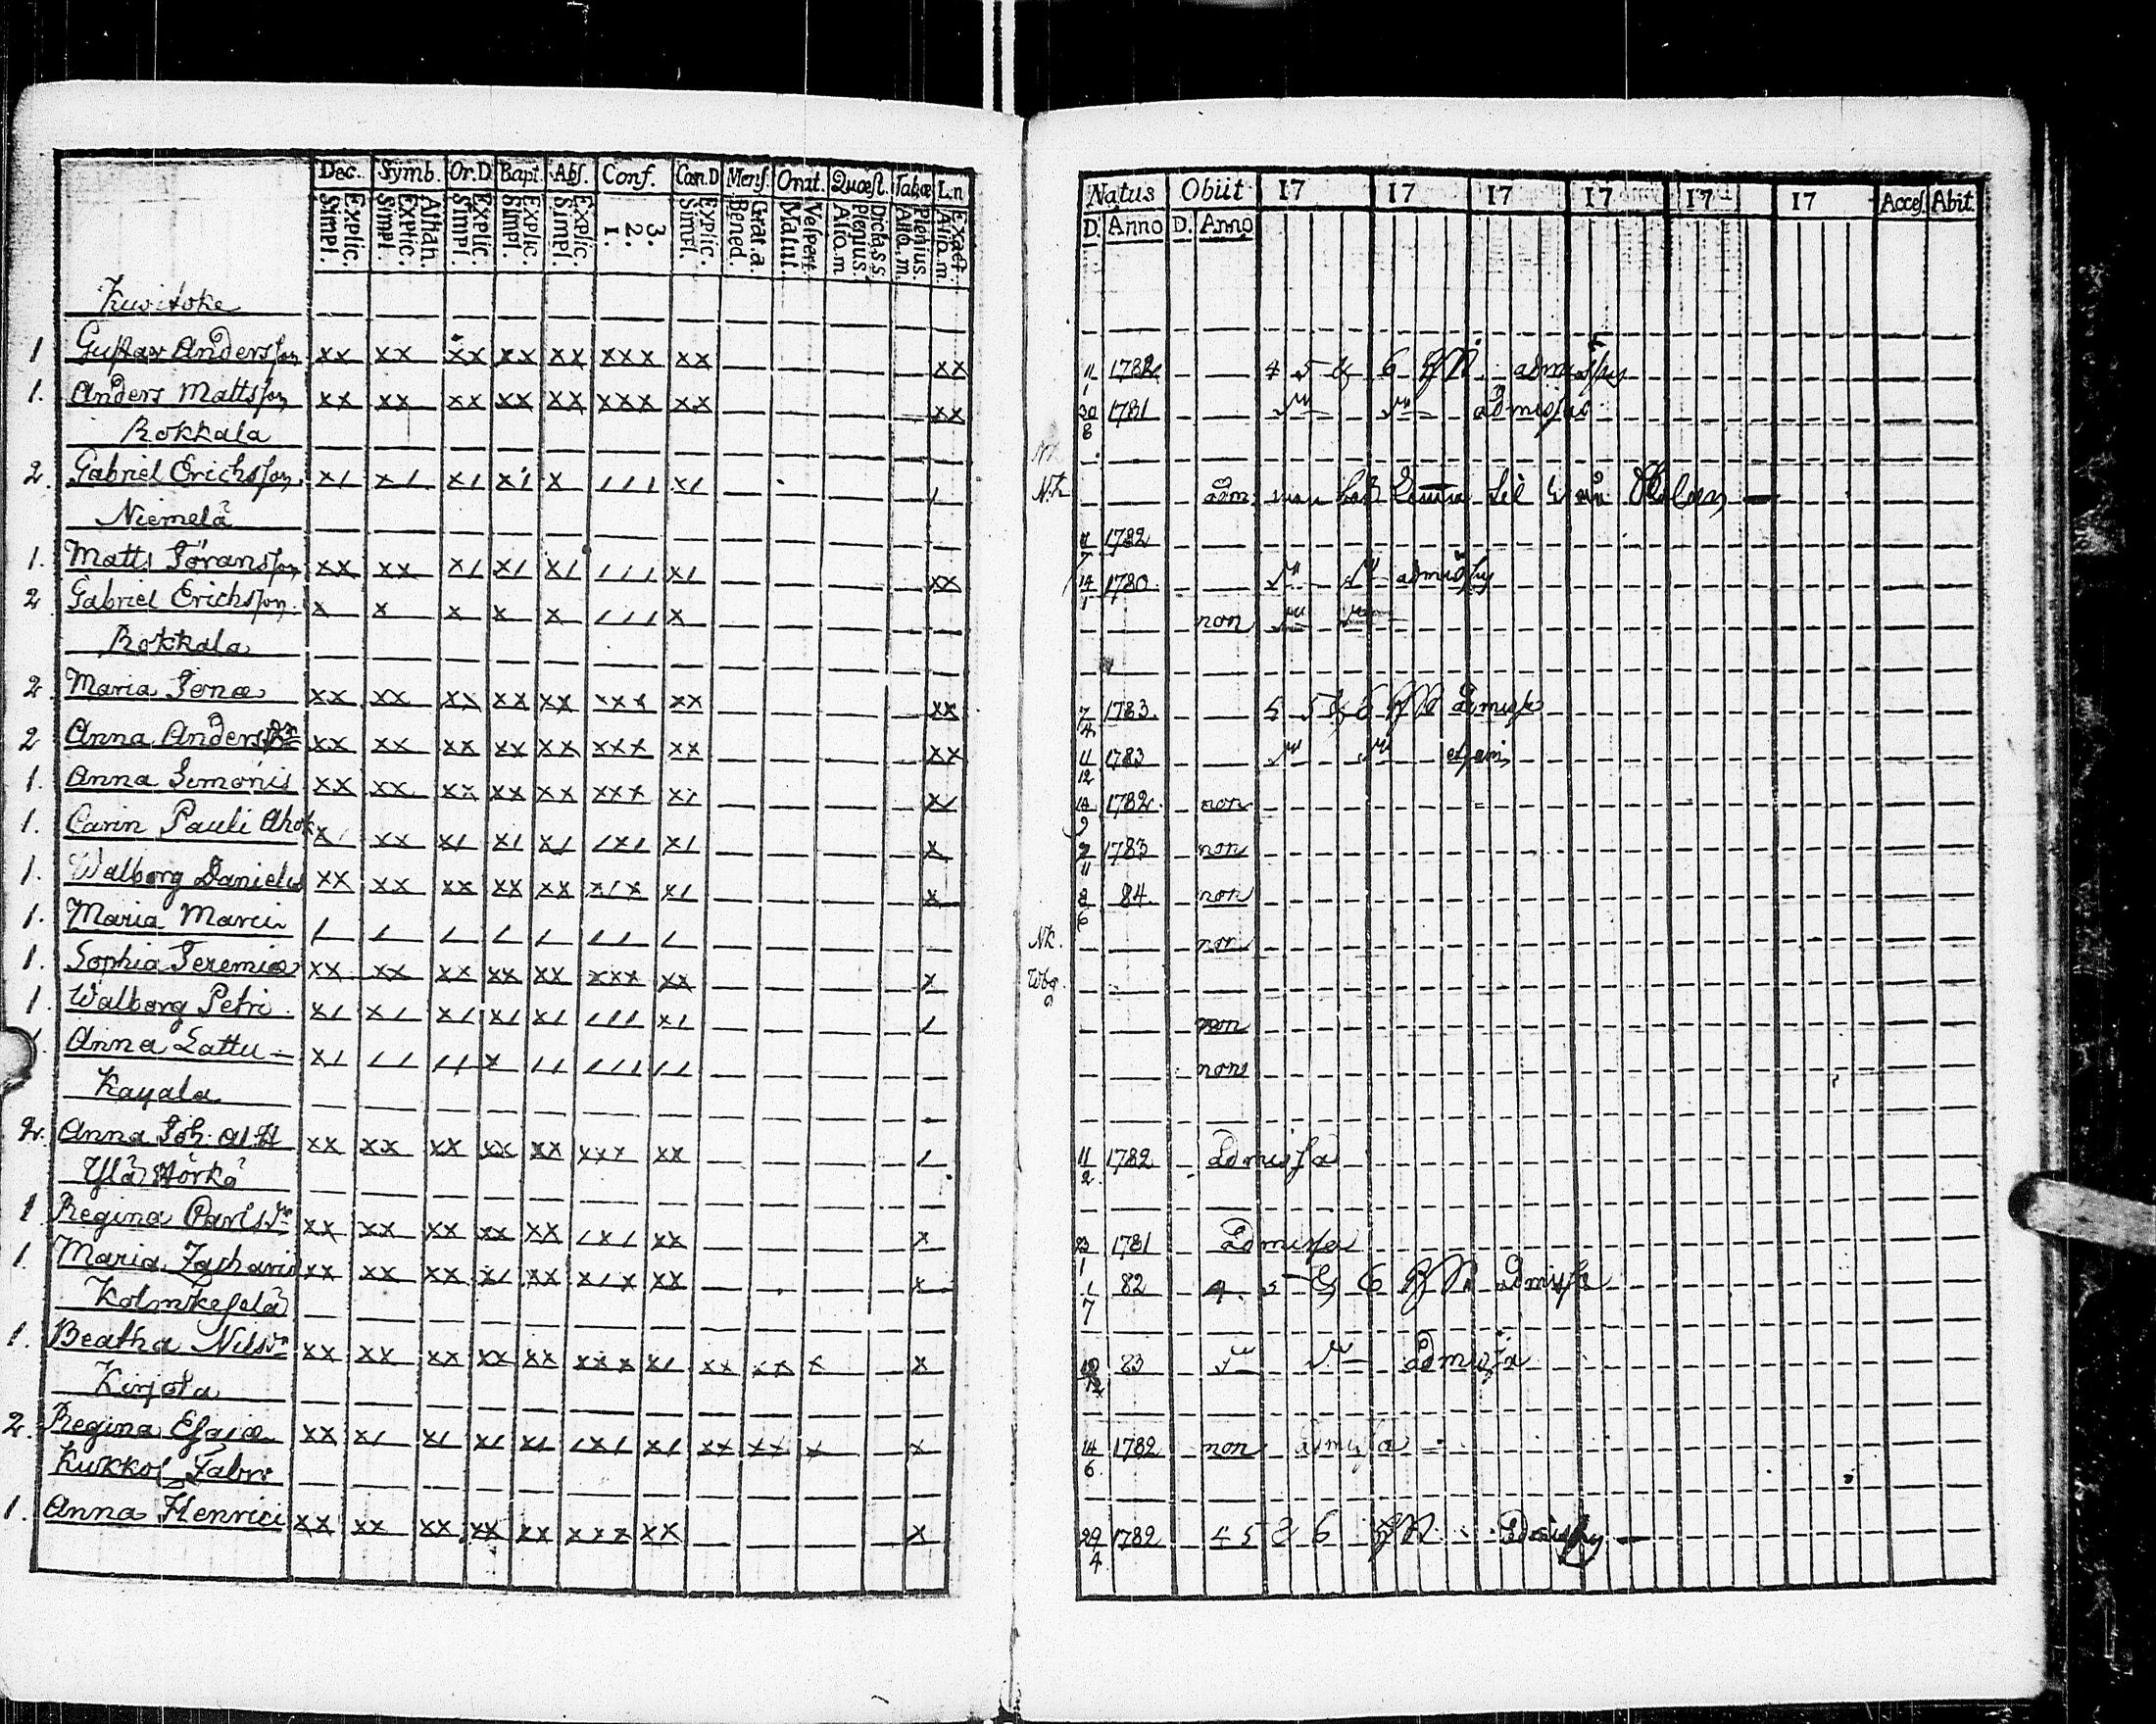 Dec. Symb. Or.D Bapt. Abs. Conf. Cœn.D Mens. Orat. Quæst. Tabæ L.n
Explic. Simpl. Athan. Explic. Simpl. Explic. Simpl. Explic. Simpl. Explic. Simpl. 3. 2. 1. Explic. Simpl. Grat.a. Bened. Vespert. Matut. Dictass. Plenius Alio.m Plenius. Alio.m. Exact. Alio.m.
Natus Obiit 17 17 17 17 17 17 Acces. Abit
D. Anno D. Anno
Kuvitoke
1 Gustav Andersson xx xx xx xx xx xxx xx xx 11/1 1782 4 5 & 6 admissus
1. Anders Mattsson xx xx xx xx xx xxx xx xx 20/8 1781 admissus
Rokkala
2. Gabriel Erichsson x/ x/ x/ x/ x /// x/ / Nk adm.
Niemelä
1782
1. Matts Göransson xx xx x/ x/ x/ /// x/ xx 14/1 1780 admissus
2 Gabriel Erichsson x x x x x /// x non
Rokkala
2. Maria Jonæ xx xx xx xx xx xxx xx xx 7 1783. 5 admissa
2 Anna Andersdr xx xx xx xx xx xxx xx xx 11/12 1783
1. Anna Simonis xx xx xx xx xx xxx x/ x/ 14/9 1782 non
1. Carin Pauli x/ xx x/ x/ x/ /x/ x/ x 1783 non
1. Walborg Danielis xx xx xx xx xx x/x x/ x 8/6 84. non
1. Maria Marci / / / / / // / Nk. non
1. Sophia Jeremiæ xx xx xx xx xx xxx xx x Wbg.
1. Walborg Petri x/ x/ x/ x/ x/ /// x/ / non
1. Anna Lattu x/ // // x // /// // non
Kayala
2. Anna Joh. xx xx xx xx xx xxx xx / 11/2 1782 admissa
Ylä
1 Regina Carlsdr xx xx xx xx xx /x/ xx x 23/1 1781 admissa
1 Maria Zachariæ xx xx xx x/ xx x/x xx x 1/7 82 4. 5 & 6 admissa
Kolmkeselä
1. Beatha Nilsdr xx xx xx xx xx xxx x/ xx xx x x 83 admissa
Kirjola
2. Regina Esaiæ xx x/ x/ x/ x/ /x/ x/ xx xx x x 14/6 1782 non admissa
Kukkos Fabr
1. Anna Henrici xx xx xx xx xx xxx xx x 29/4 1782 4 5 & 6